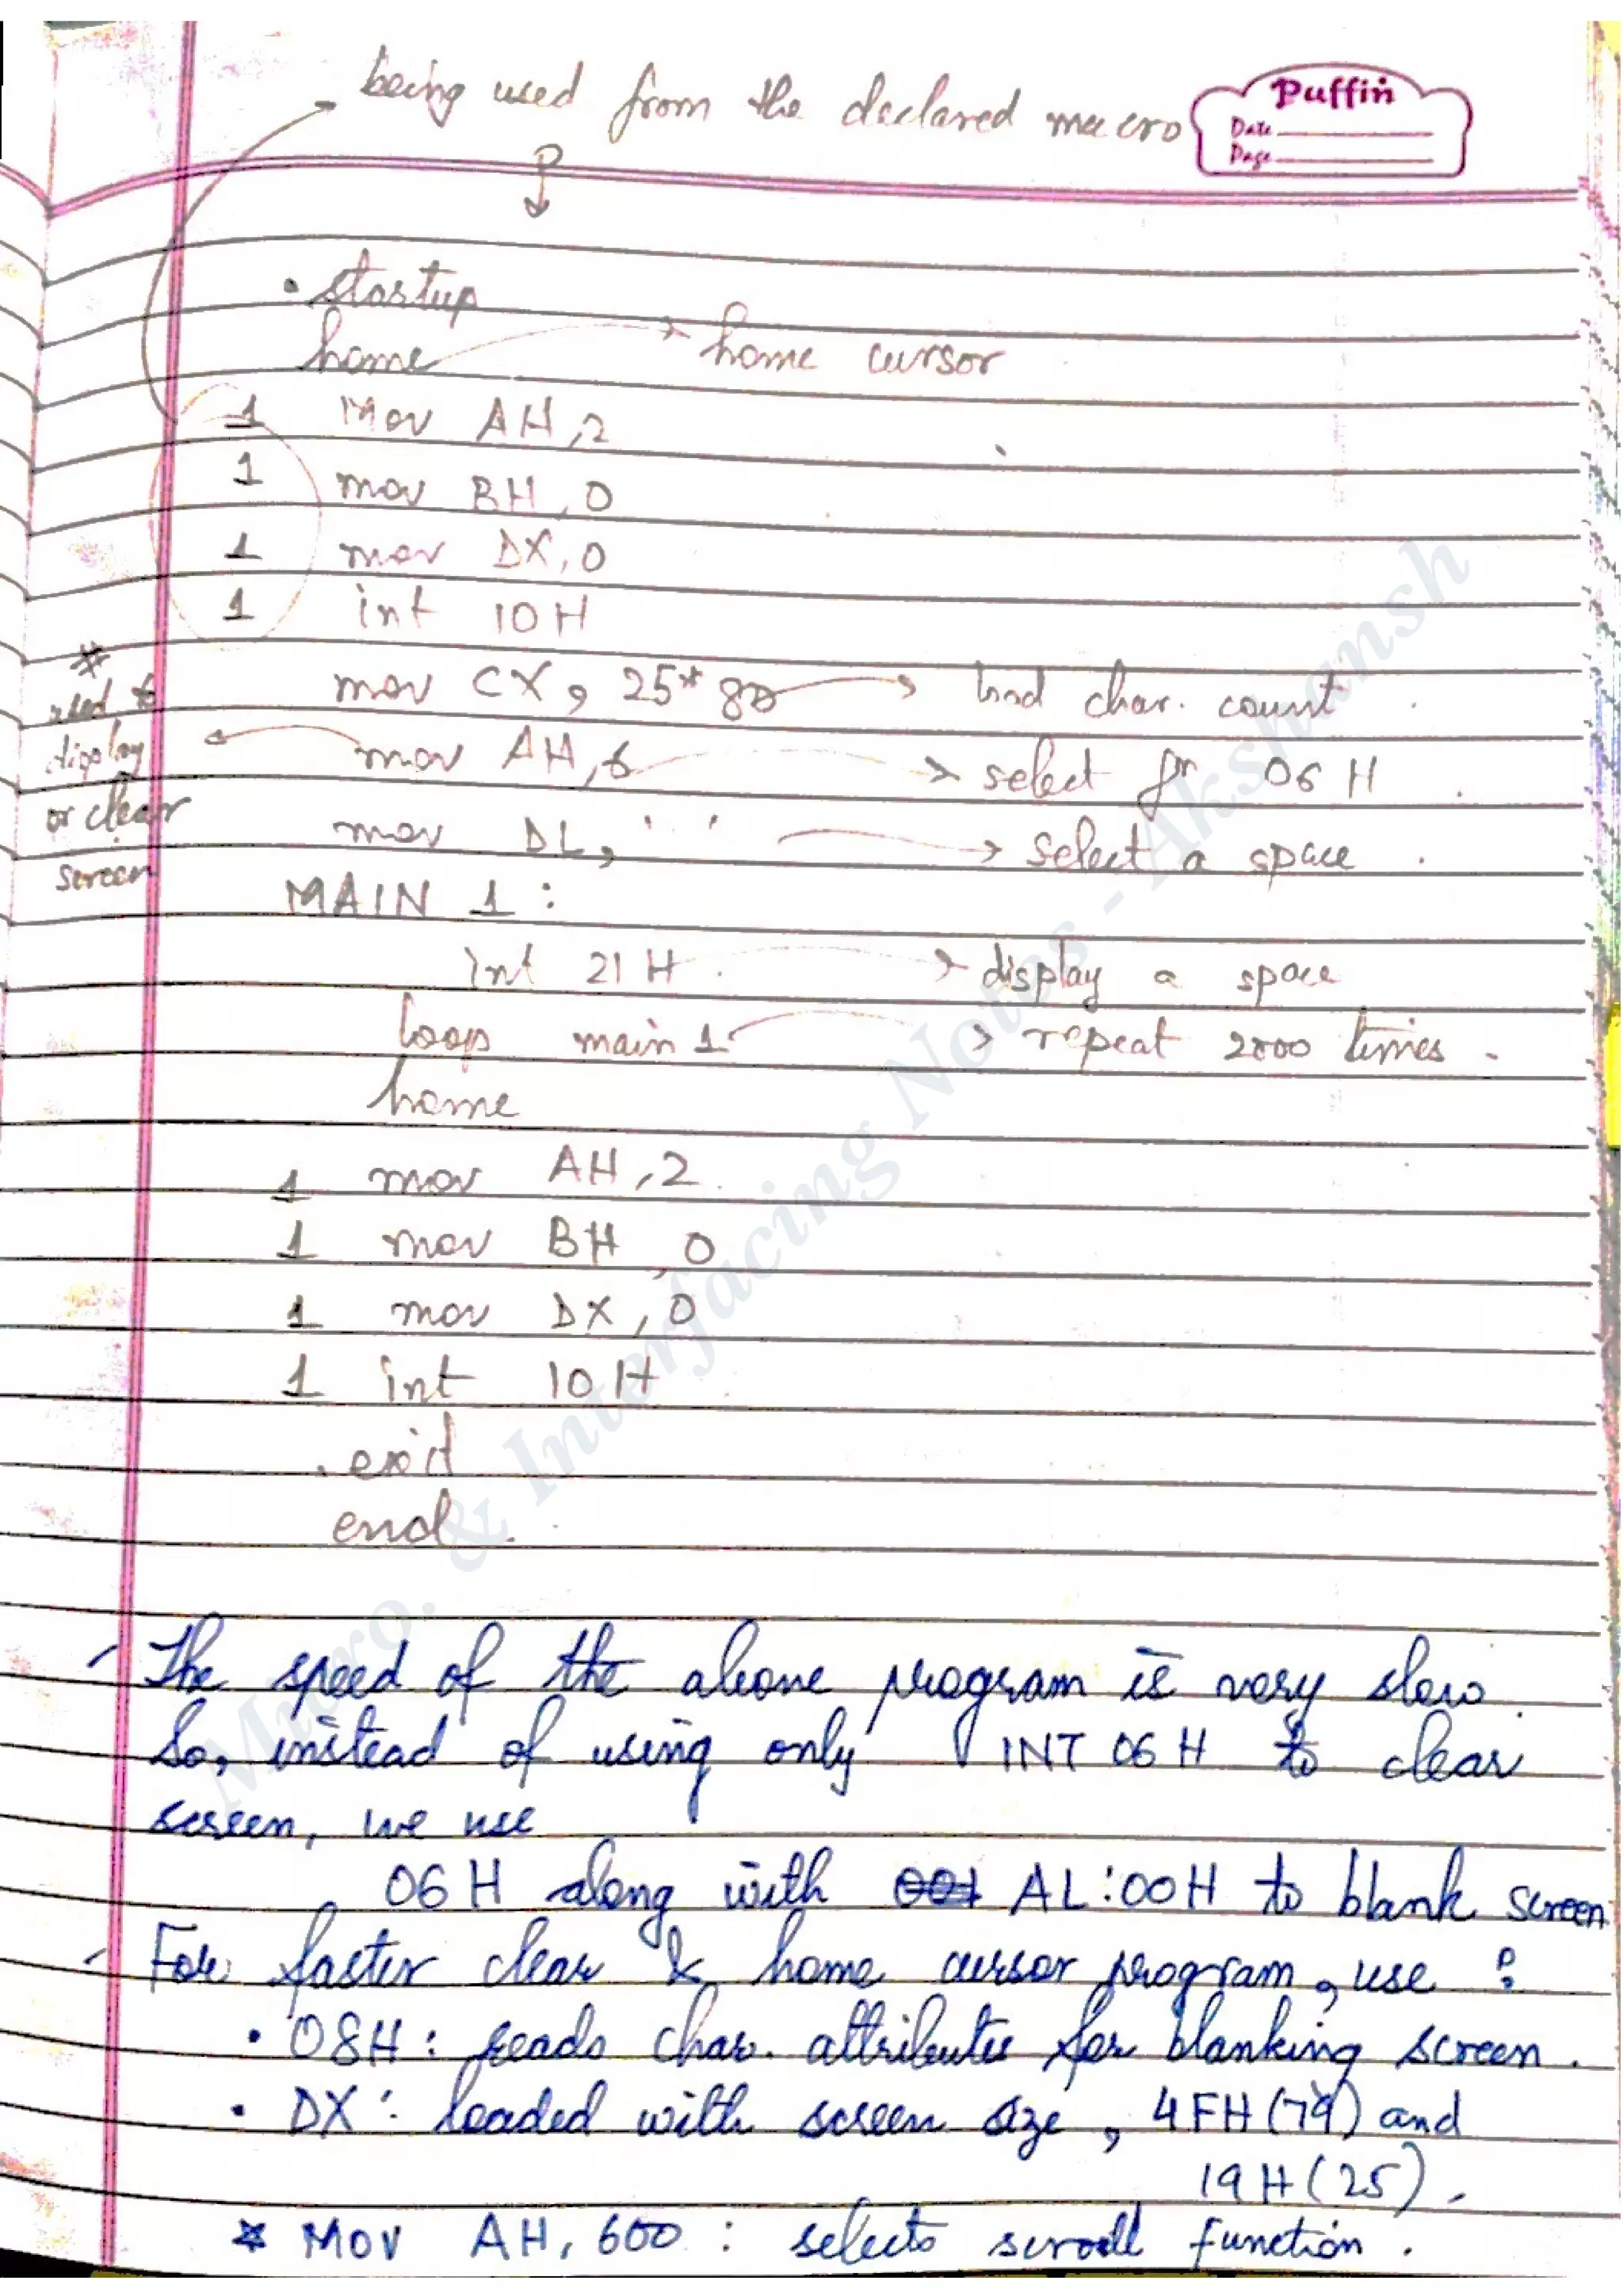 being used from the declared macro
Puffin
Date
Page
.startup
home → home cursor
1 Mov AH, 2
1 mov BH, 0
1 mov DX, 0
1 int 10H
mov CX, 25*80 → load char. count
* used to display or clear screen
mov AH, 6 → select fn 06H
mov DL, ' ' → select a space
MAIN 1:
int 21H → display a space
loop main 1 → repeat 2000 times.
home
1 mov AH, 2
1 mov BH, 0
1 mov DX, 0
1 int 10H
.exit
end
- The speed of the above program is very slow.
So, instead of using only INT 06H to clear
screen, we use
06H along with AL:00H to blank screen
- For faster clear & home cursor program, use :
• 08H : reads char. attributes for blanking screen.
• DX : loaded with screen size, 4FH (79) and
19H (25).
* MOV AH, 600 : selects scroll function.
Micro. & Interfacing Notes - Akshansh